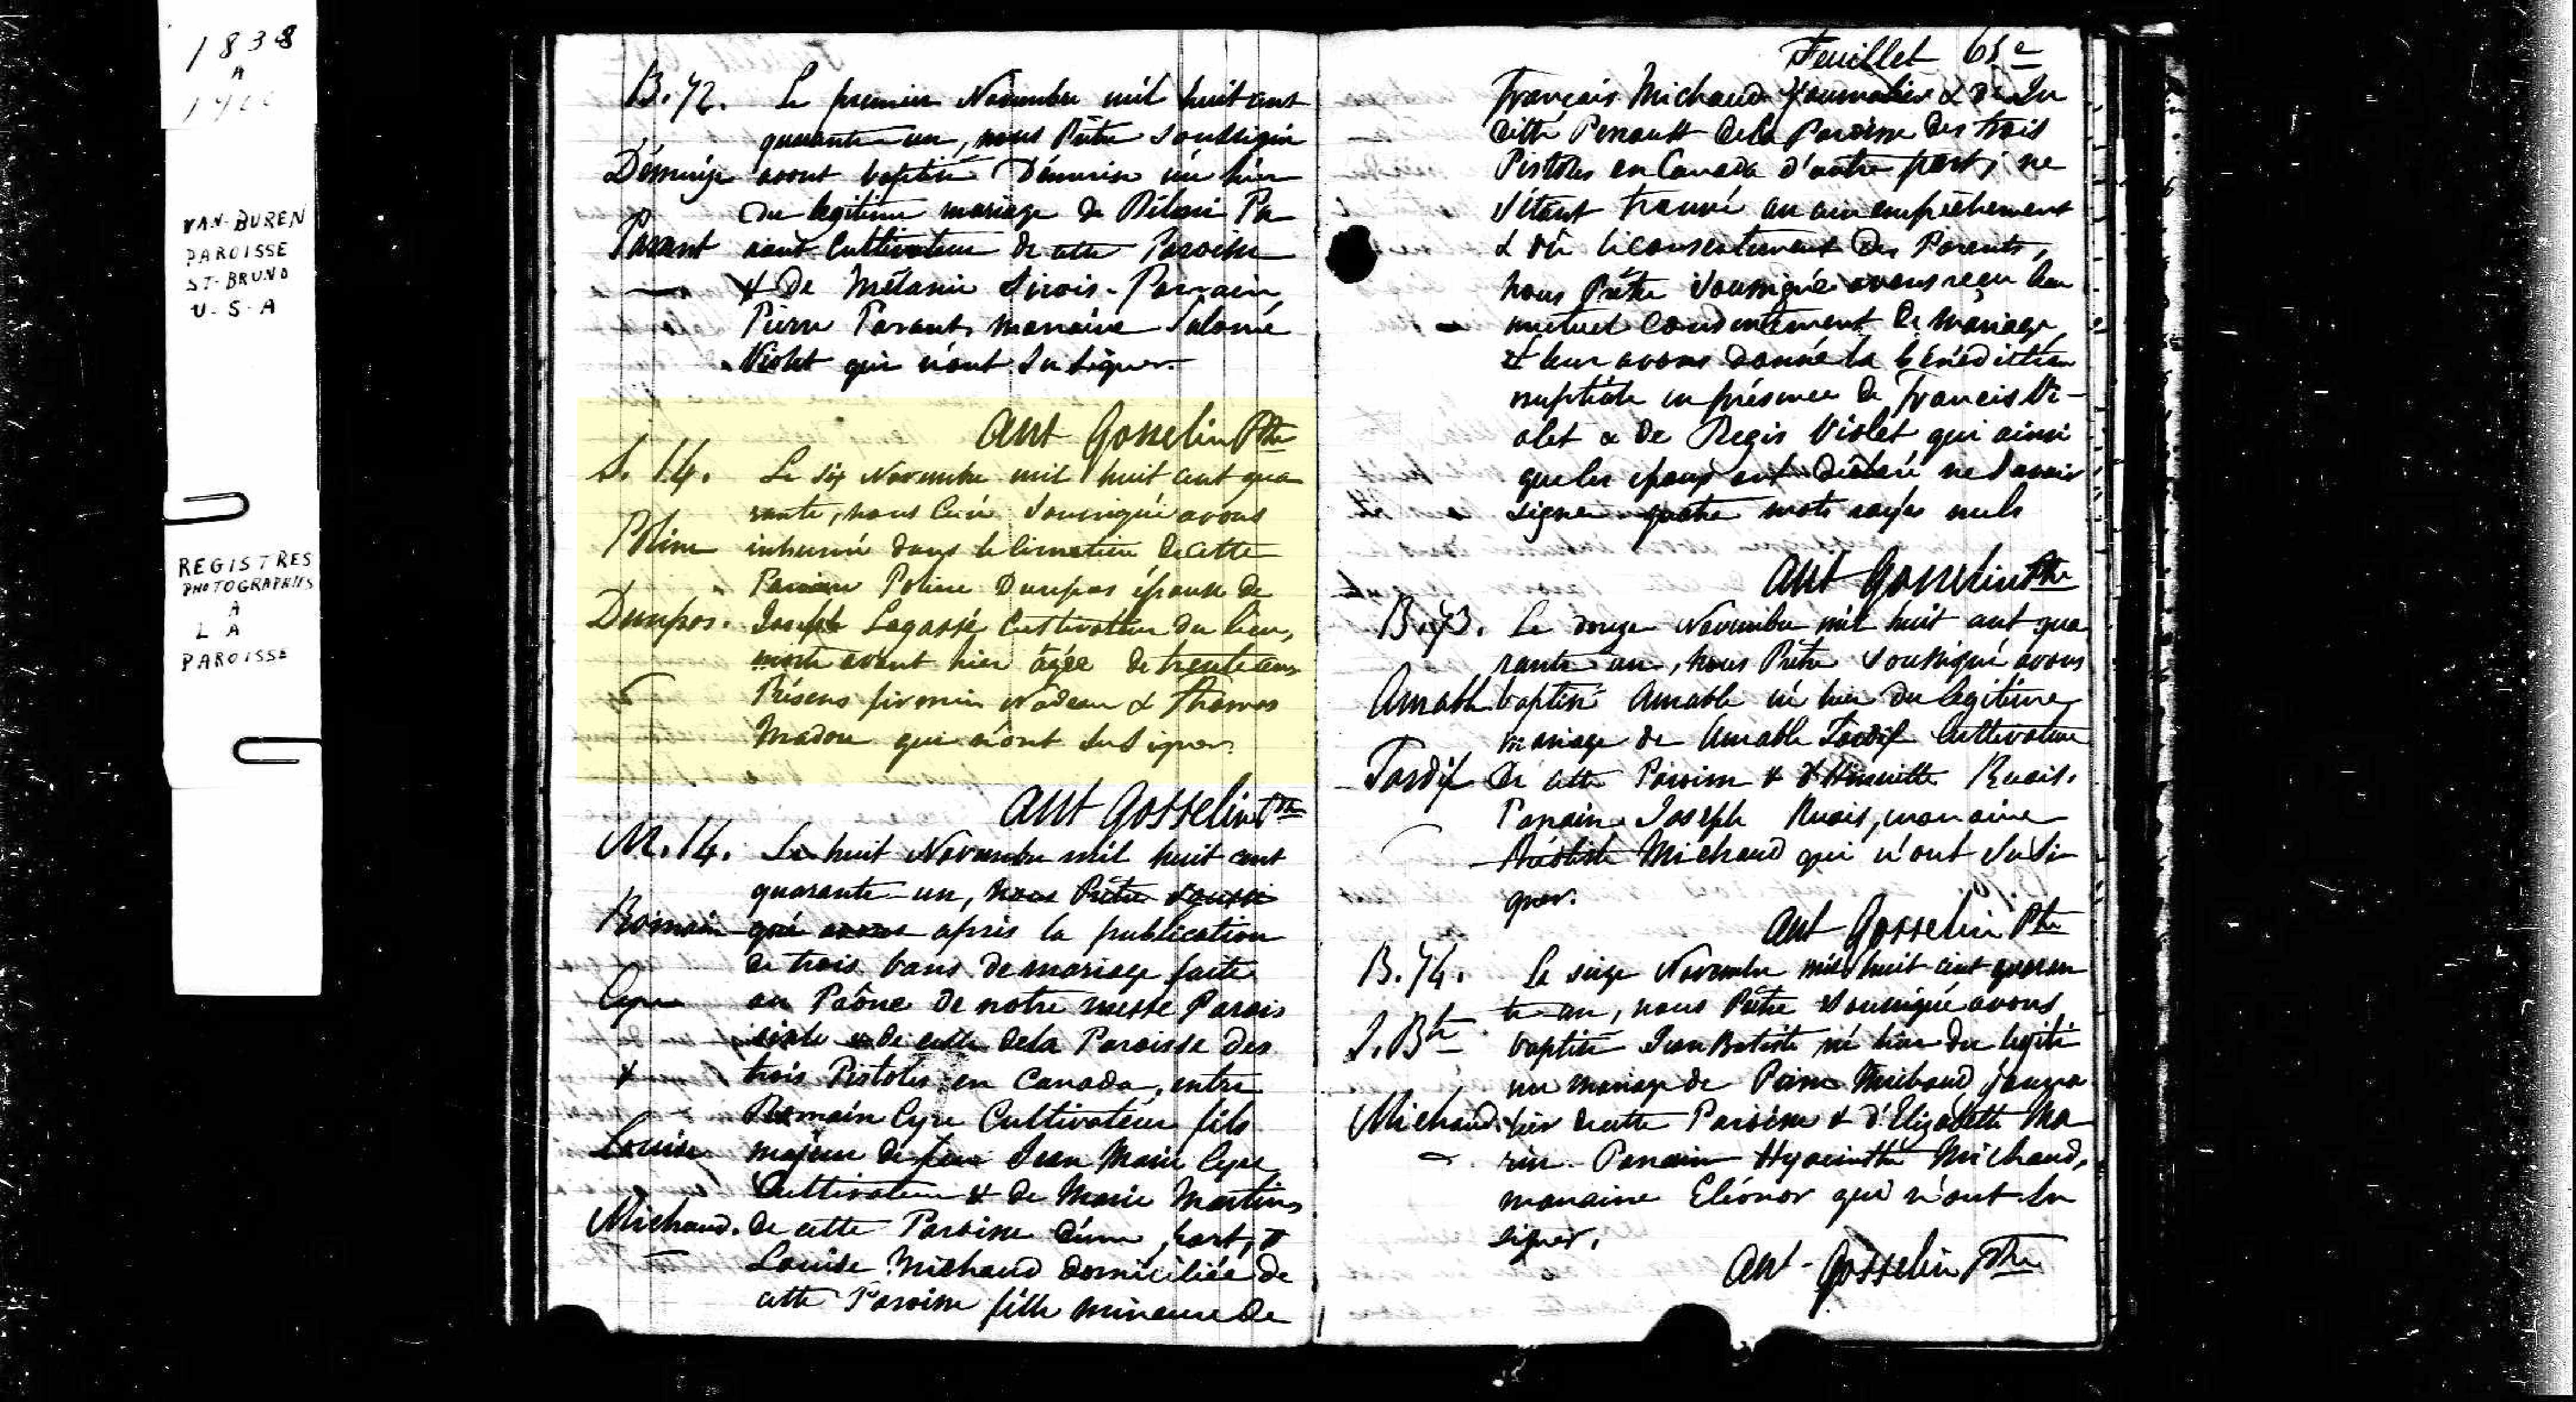 1838
A
1900
VAN-BUREN
PAROISSE
ST-BRUNO
U-S-A
REGISTRES
PHOTOGRAPHIES
A
LA
PAROISSE
B.72. Le premier Novembre mil huit cent
quarante-un, nous Prêtre soussigné
Démerise avons baptisé Démerise née hier
du legitime mariage de Béloni Pa
Parant rant Cultivateur de cette Paroisse
& de Mélanie Sirois. Parrain
Pierre Parant, marraine Salomé
Violet qui n'ont su signer.
Ant Gosselin Ptre
S. 14. Le six Novembre mil huit cent qua
rante, nous Curé soussigné avons
Poline inhumé dans le Cimetière de cette
Paroisse Poline Dumpos épouse de
Dumpos. Joseph Legassé Cultivateur du lieu,
morte avant hier âgée de trente ans
Présens firmin Nadeau & Thomas
Madou qui n'ont su signer.
Ant Gosselin Ptre
M. 14. Le huit Novembre mil huit cent
quarante-un, nous Prêtre soussi
Romain gné avons après la publication
de trois bans de mariage faite
Cyre au Prône de notre messe Parois
siale & de celle de la Paroisse des
& trois Pistoles en Canada, entre
Romain Cyre Cultivateur fils
Louise majeur de feu Jean Marie Cyre
Cultivateur & de Marie Martin
Michaud. de cette Paroisse d'une part, &
Louise Michaud domiciliée de
cette Paroisse fille mineure de
Feuillet 65e
François Michaud Journalier & de Ju
ditte Penault de la Paroisse des trois
Pistoles en Canada d'autre part; ne
s'étant trouvé aucun empêchement
& vû le consentement des Parents,
nous Prêtre soussigné avons reçu leur
mutuel consentement de mariage
& leur avons donné la bénédiction
nuptiale en présence de Francis Vi-
olet & de Regis Violet qui ainsi
que les epoux ont déclaré ne savoir
signer. quatre mots rayés nuls
Ant Gosselin Ptre
B.73. Le douze Novembre mil huit cent qua
rante un, nous Prêtre soussigné avons
Amable baptisé Amable né hier du legitime
mariage de Amable Tardif Cultivateur
Tardif de cette Paroisse & d'Henriette Ruais.
Parrain Joseph Ruais, marraine
Michaud qui n'ont su si
gner.
Ant Gosselin Ptre
B.74. Le seize Novembre mil huit cent quaran
te un, nous Prêtre soussigné avons
J. Bte baptisé Jean Batiste né hier du legiti
me mariage de Michaud
Michaud. lier de cette Paroisse & d'Elizabeth Mo
rin. Parrain Hyacinthe Michaud,
marraine Eléonor qui n'ont su
signer.
Ant-Gosselin Ptre